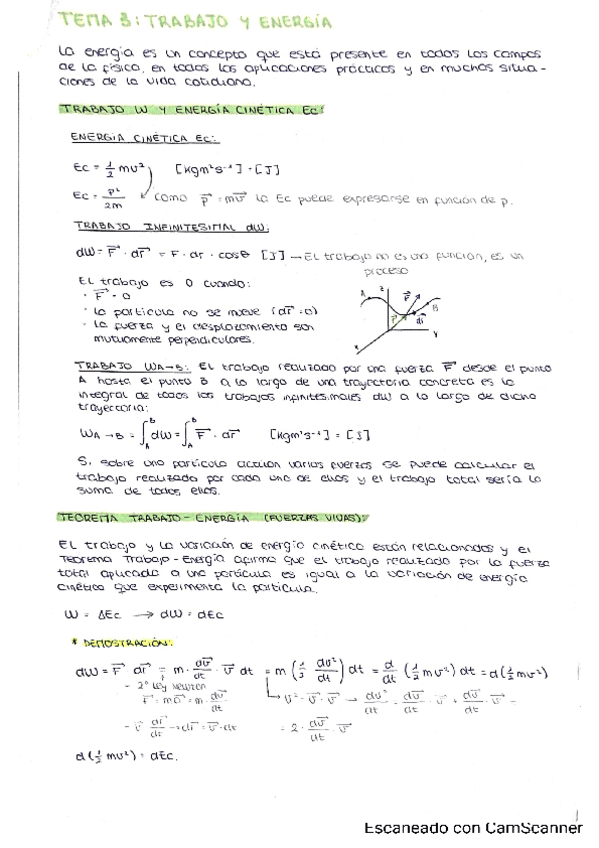 TEMA 3: TRABAJO Y ENERGÍA
La energía es un concepto que está presente en todos los campos
de la física, en todas las aplicaciones prácticas y en muchas situa-
ciones de la vida cotidiana.
TRABAJO W Y ENERGÍA CINÉTICA Ec:
ENERGÍA CINÉTICA Ec:
Ec = 1/2 mv² [Kgm²s⁻²] = [J]
Ec = p²/2m como p⃗ = mv⃗ la Ec puede expresarse en función de p.
TRABAJO INFINITESIMAL dW:
dW = F⃗ · dr⃗ = F · dr · cosθ [J] → El trabajo no es una función, es un
proceso
El trabajo es 0 cuando:
· F⃗ = 0
· la partícula no se mueve (dr⃗ = 0)
· la fuerza y el desplazamiento son
mutuamente perpendiculares.
A z F⃗ B r⃗ dr⃗ x y
TRABAJO WA→B: El trabajo realizado por una fuerza F⃗ desde el punto
A hasta el punto B a lo largo de una trayectoria concreta es la
integral de todos los trabajos infinitesimales dW a lo largo de dicha
trayectoria:
WA→B = ∫_A^B dW = ∫_A^B F⃗ · dr⃗ [Kgm²s⁻²] = [J]
Si sobre una partícula actúan varias fuerzas se puede calcular el
trabajo realizado por cada una de ellas y el trabajo total sería la
suma de todos ellos.
TEOREMA TRABAJO - ENERGÍA (FUERZAS VIVAS):
El trabajo y la variación de energía cinética están relacionados y el
Teorema Trabajo - Energía afirma que el trabajo realizado por la fuerza
total aplicada a una partícula es igual a la variación de energía
cinética que experimenta la partícula.
W = ΔEc → dW = dEc
* DEMOSTRACIÓN:
dW = F⃗ dr⃗ = m · dv⃗/dt · v⃗ dt = m (1/2 dv²/dt) dt = d/dt (1/2 mv²) dt = d(1/2 mv²)
- 2ª ley Newton
F⃗ = ma⃗ = m · dv⃗/dt
v² = v⃗ · v⃗ → dv²/dt = dv⃗/dt · v⃗ + dv⃗/dt · v⃗ =
- v⃗ = dr⃗/dt → dr⃗ = v⃗ · dt
= 2 · dv⃗/dt · v⃗
d(1/2 mv²) = dEc.
Escaneado con CamScanner